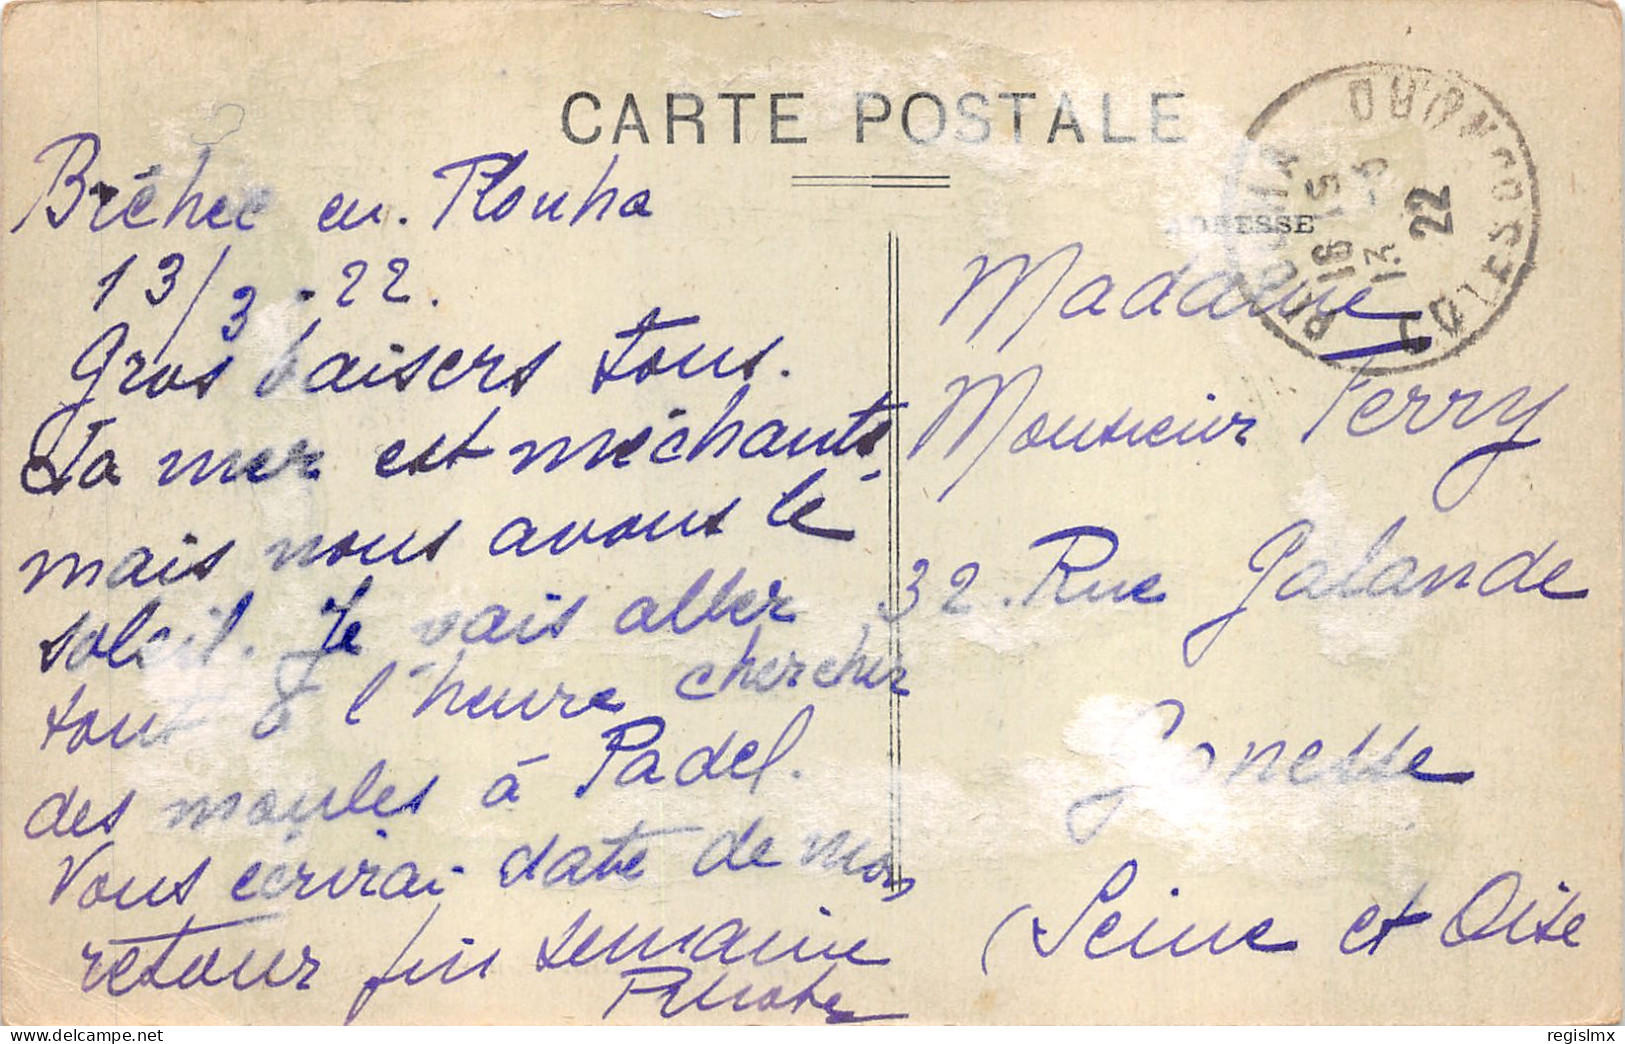 CARTE POSTALE
Bréhec en. Plouha
13/3-22.
Gros baisers tous.
La mer est méchante,
mais nous avons le
soleil. Je vais aller
tout à l'heure chercher
des moules à Padel.
Vous écrirai date de mon
retour fin semaine
ADRESSE
Madame
Monsieur Ferry
32. Rue Galande
Gonesse
(Seine et Oise
16 15
13 -3
22
COTES DU NORD
regislmx